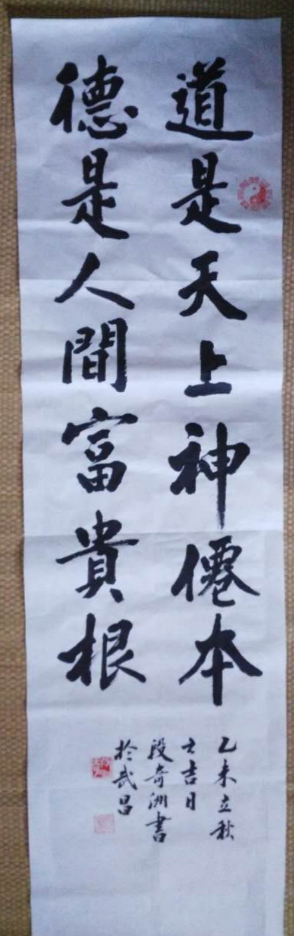 道是天上神僊本
德是人間富貴根
乙未立秋
之吉日
段奇洲書
於武昌